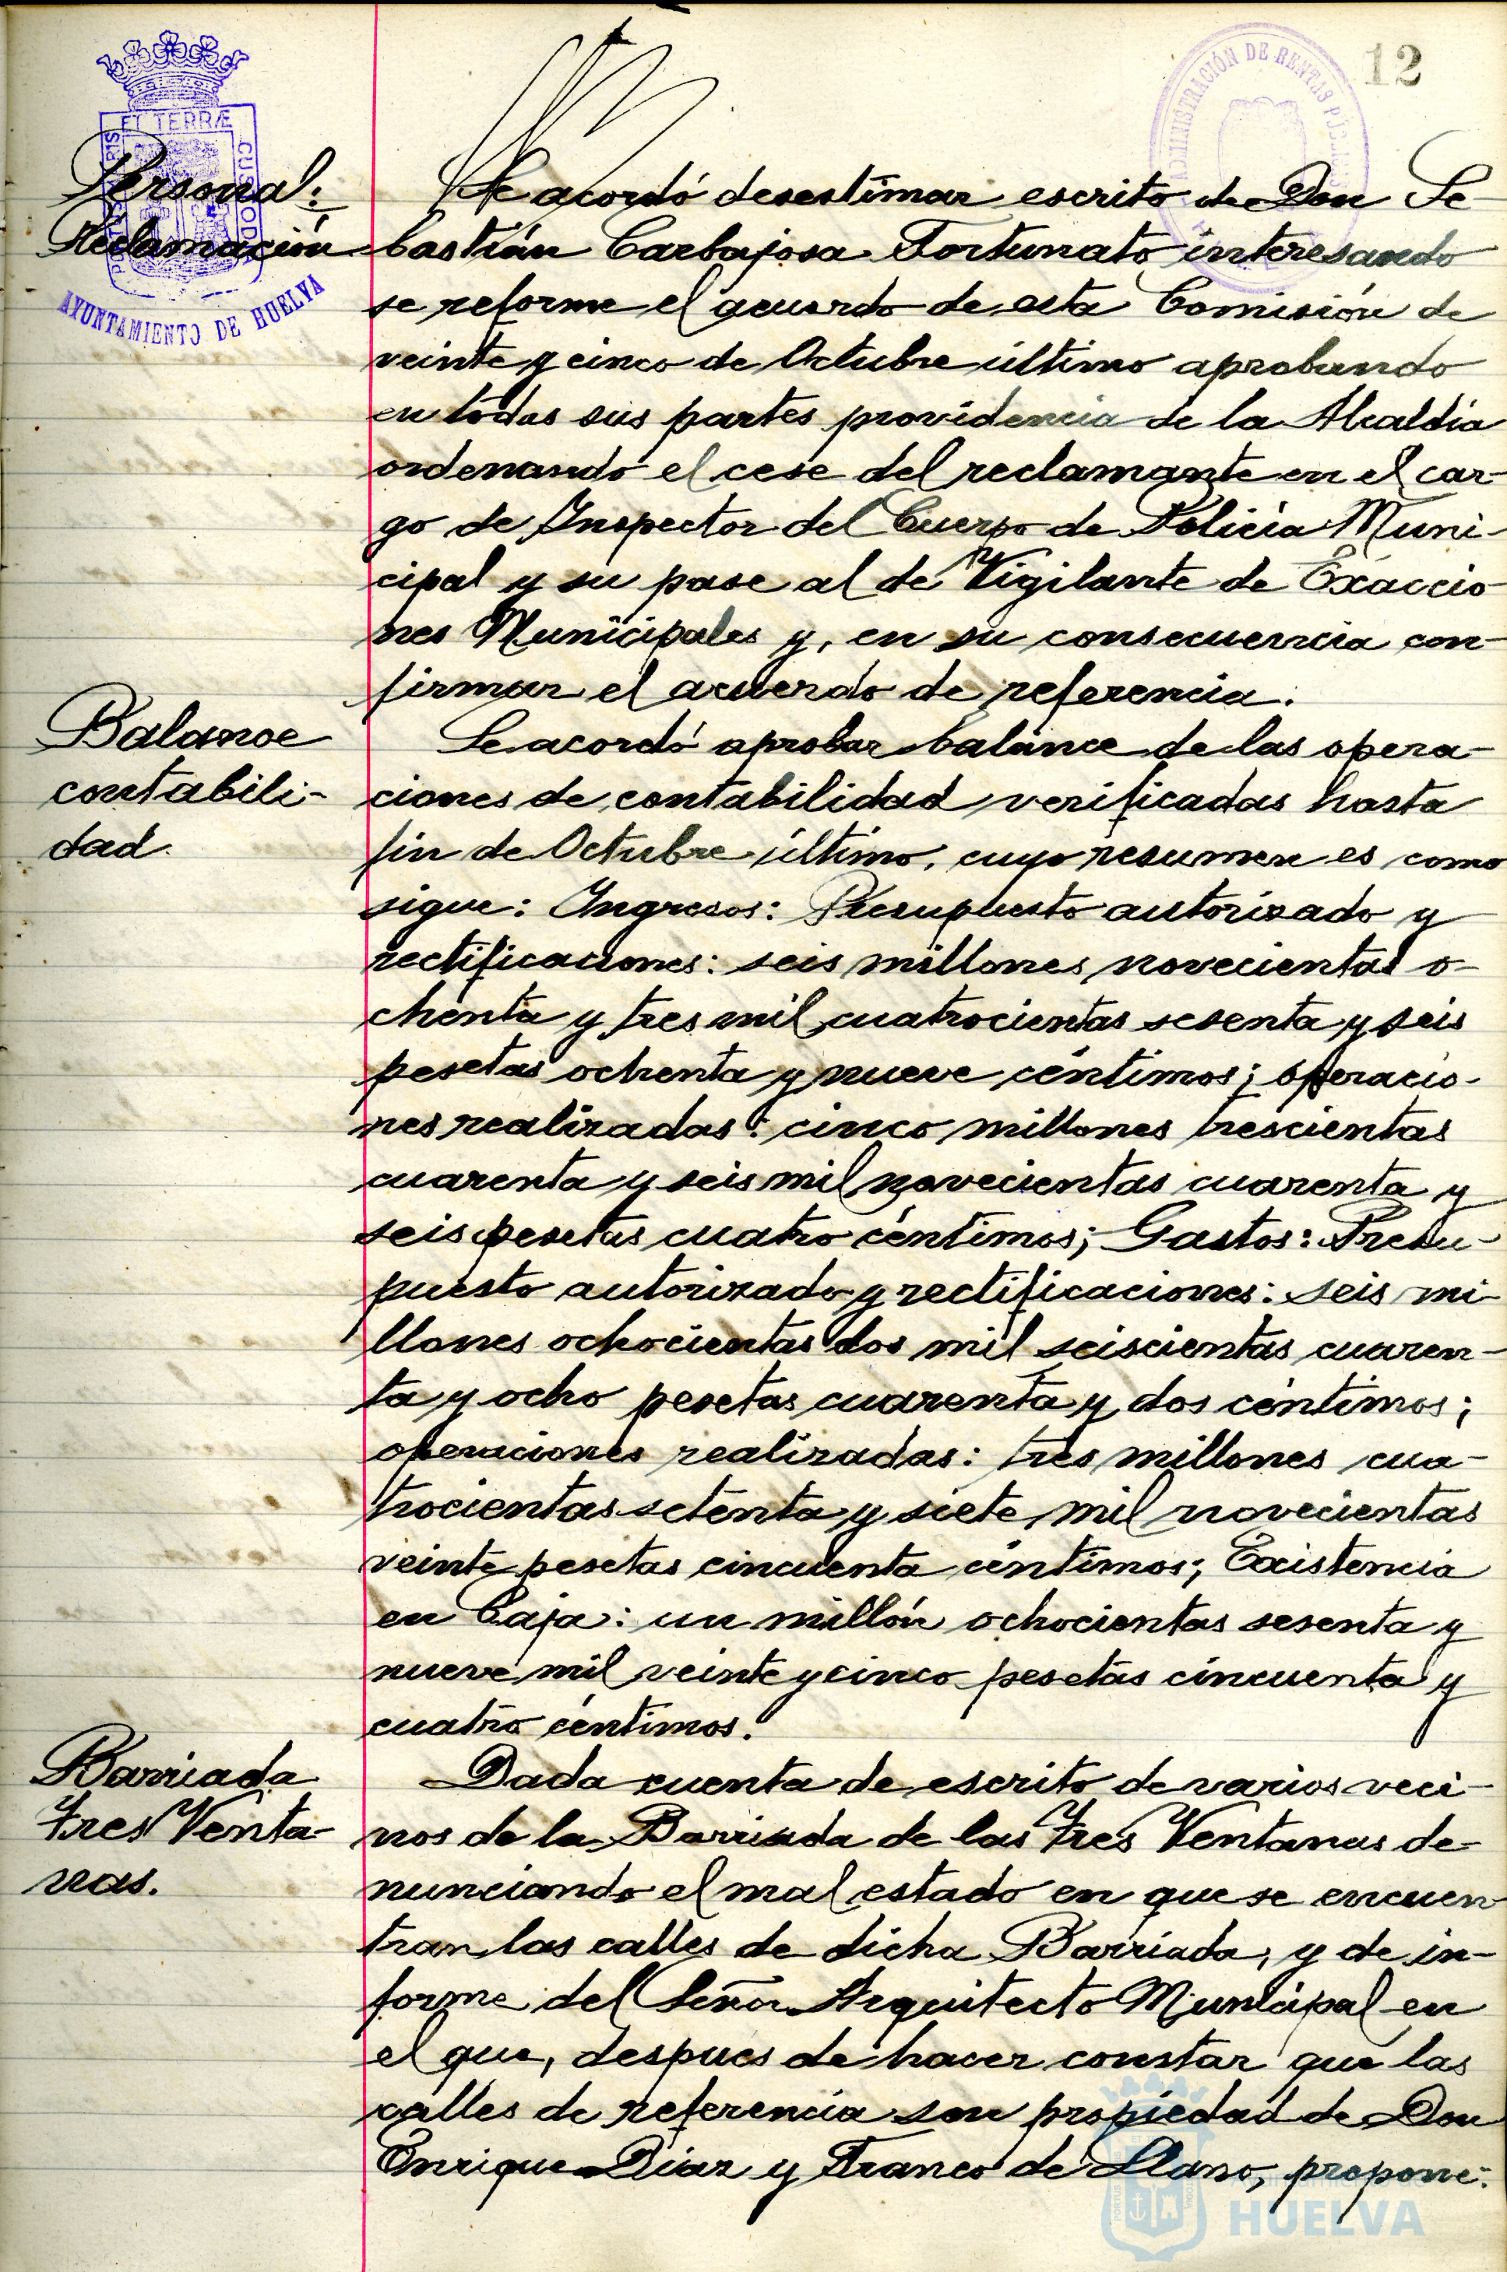 12
ADMINISTRACIÓN DE RENTAS
ET TERRÆ
PORTUS MARIS
CUSTODIA
AYUNTAMIENTO DE HUELVA
Personal:
Reclamación
Se acordó desestimar escrito de Don Se-
bastián Carbajosa Fortunato interesando
se reforme el acuerdo de esta Comisión de
veinte y cinco de Octubre último aprobando
en todas sus partes providencia de la Alcaldía
ordenando el cese del reclamante en el car-
go de Inspector del Cuerpo de Policía Muni-
cipal y su pase al de Vigilante de Exaccio-
nes Municipales y, en su consecuencia con-
firmar el acuerdo de referencia.
Balance
contabili-
dad.
Se acordó aprobar balance de las opera-
ciones de contabilidad verificadas hasta
fin de Octubre último, cuyo resumen es como
sigue: Ingresos: Presupuesto autorizado y
rectificaciones: seis millones novecientas o-
chenta y tres mil cuatrocientas sesenta y seis
pesetas ochenta y nueve céntimos; operacio-
nes realizadas: cinco millones trescientas
cuarenta y seis mil novecientas cuarenta y
seis pesetas cuatro céntimos; Gastos: Presu-
puesto autorizado y rectificaciones: seis mi-
llones ochocientas dos mil seiscientas cuaren-
ta y ocho pesetas cuarenta y dos céntimos;
operaciones realizadas: tres millones cua-
trocientas setenta y siete mil novecientas
veinte pesetas cincuenta céntimos; Existencia
en Caja: un millón ochocientas sesenta y
nueve mil veinte y cinco pesetas cincuenta y
cuatro céntimos.
Barriada
Tres Venta-
nas.
Dada cuenta de escrito de varios veci-
nos de la Barriada de las Tres Ventanas de-
nunciando el mal estado en que se encuen-
tran las calles de dicha Barriada, y de in-
forme del Señor Arquitecto Municipal en
el que, después de hacer constar que las
calles de referencia son propiedad de Don
Enrique Díaz y Franco de Llano, propone:
HUELVA